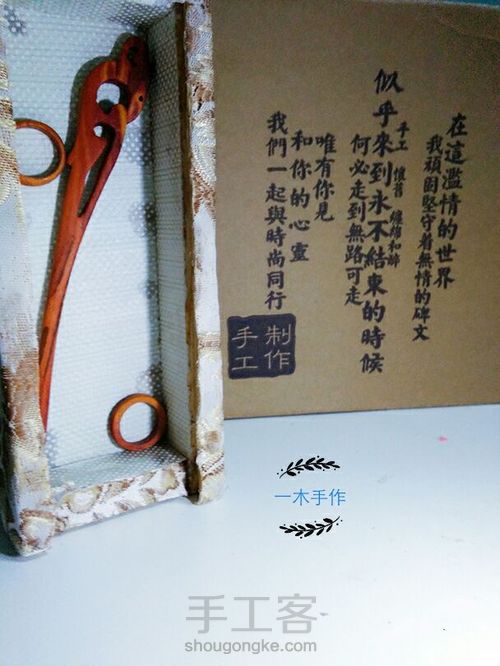 在這濫情的世界
我頑固堅守着無情的碑文
手工 懷舊
似乎來到永不結束的時候
何必走到無路可走
唯有你見
和你的心靈
我們一起與時尚同行
制作
手工
一木手作
手工客
shougongke.com